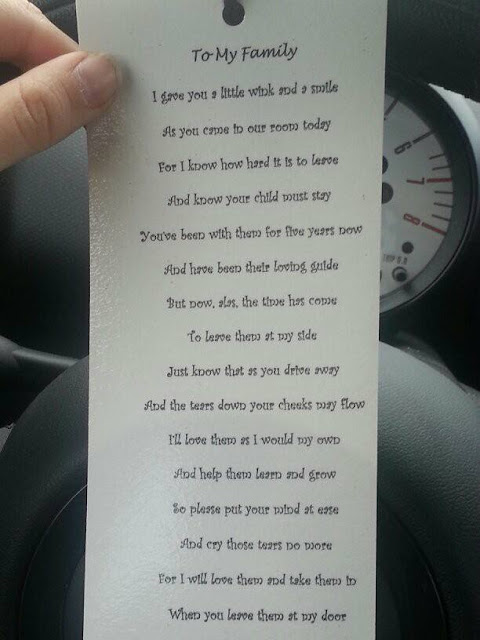 To My Family
I gave you a little wink and a smile
As you came in our room today
For I know how hard it is to leave
And know your child must stay
You've been with them for five years now
And have been their loving guide
But now, alas, the time has come
To leave them at my side
Just know that as you drive away
And the tears down your cheeks may flow
I'll love them as I would my own
And help them learn and grow
So please put your mind at ease
And cry those tears no more
For I will love them and take them in
When you leave them at my door
6
7
8
TRIP